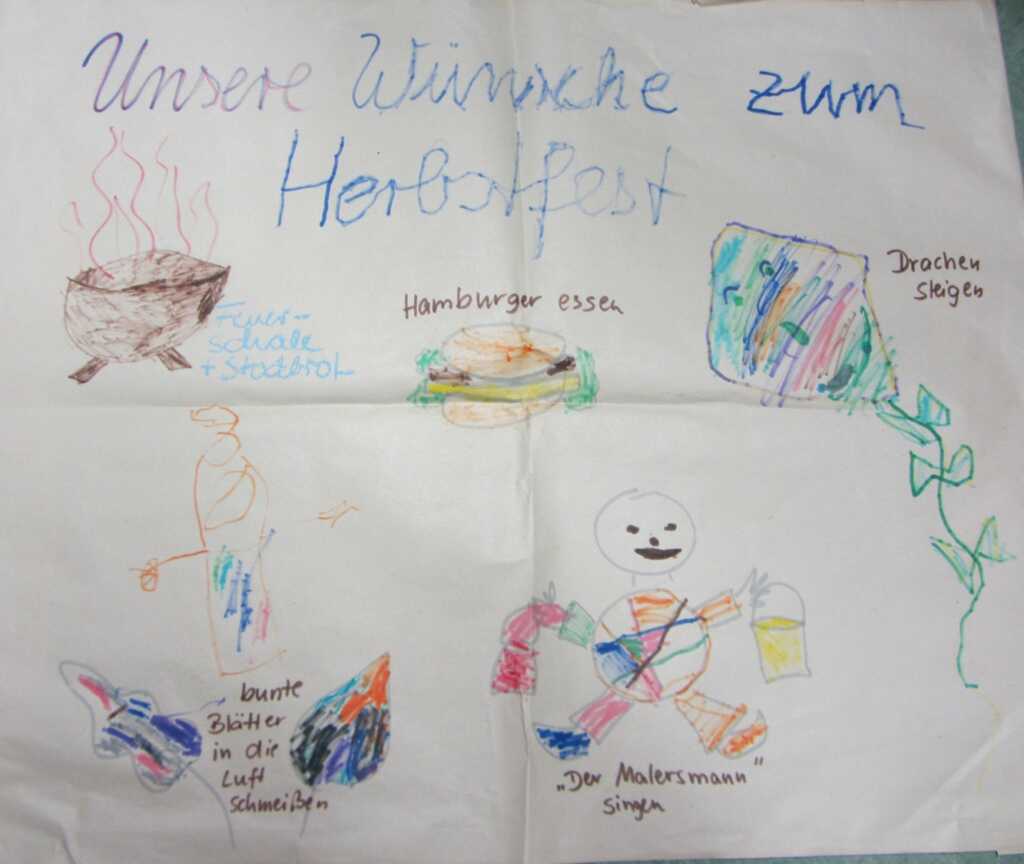 Unsere Wünsche zum
Herbstfest
Feuer-
schale
+ Stockbrot
Hamburger essen
Drachen
steigen
bunte
Blätter
in die
Luft
schmeißen
„Der Malersmann"
singen